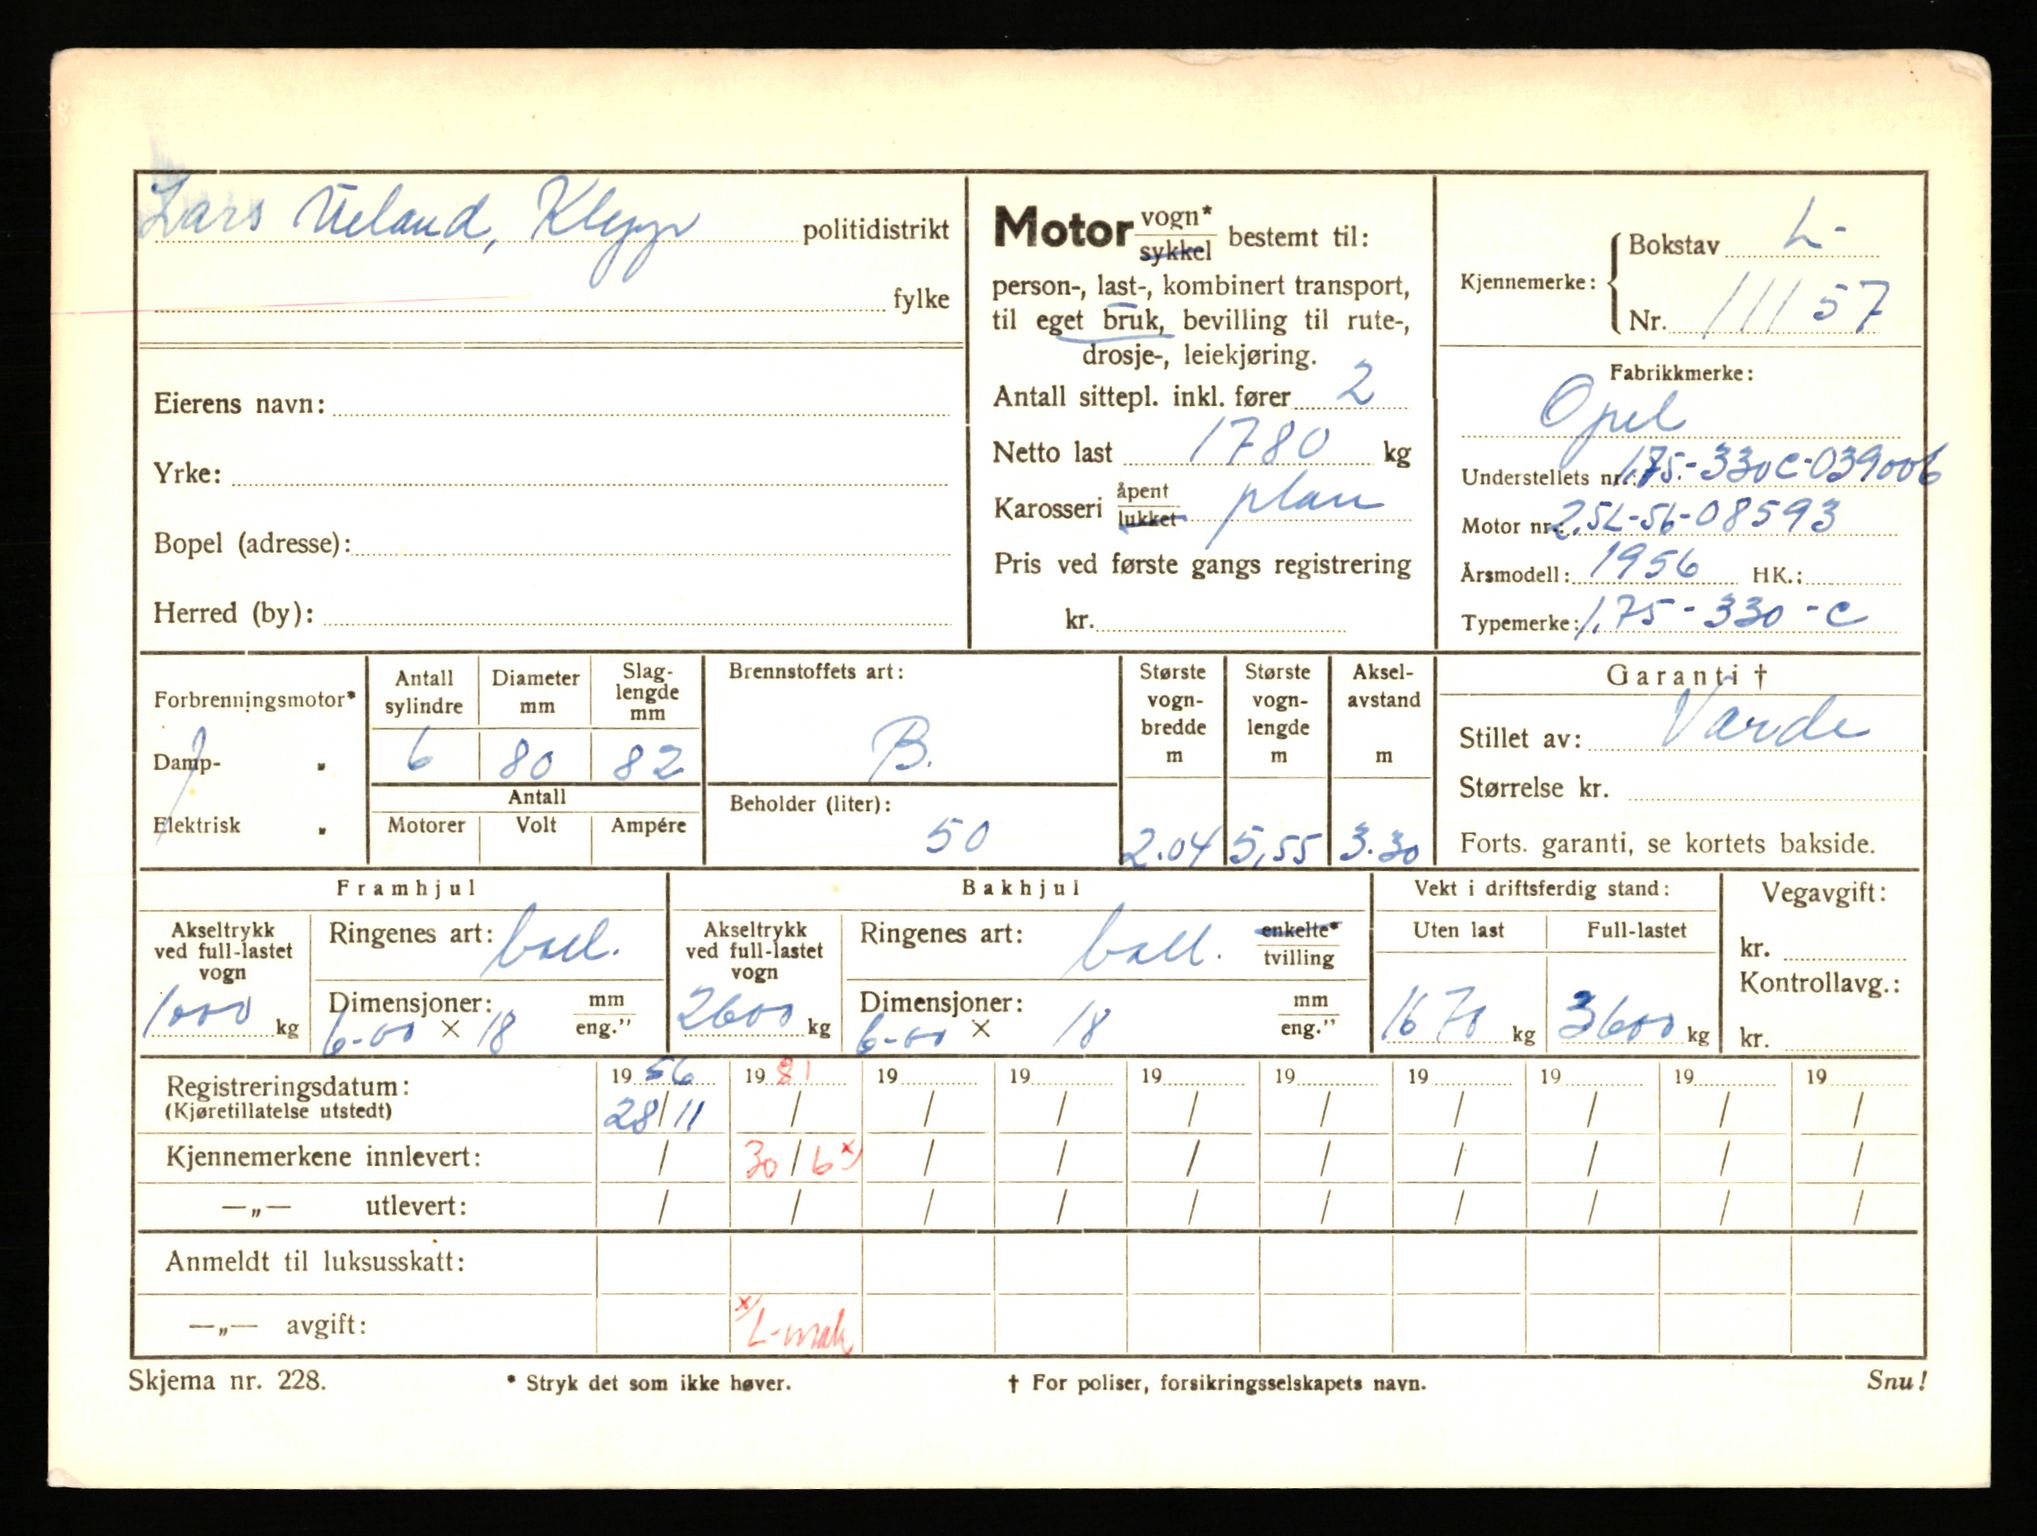 Lars Ueland, Klepp politidistrikt
fylke
Eierens navn:
Yrke:
Bopel (adresse):
Herred (by):
Motor vogn* / sykkel bestemt til:
person-, last-, kombinert transport,
til eget bruk, bevilling til rute-,
drosje-, leiekjøring.
Antall sittepl. inkl. fører 2
Netto last 1780 kg
Karosseri åpent / lukket plan
Pris ved første gangs registrering
kr.
Kjennemerke: Bokstav L-
Nr. 111157
Fabrikkmerke:
Opel
Understellets nr.: 1,75-330C-039006
Motor nr.: 2,5L-56-08593
Årsmodell: 1956 HK.:
Typemerke: 1,75-330-C
Forbrenningsmotor*
Damp- „
Elektrisk „
Antall sylindre 6
Diameter mm 80
Slag-lengde mm 82
Antall
Motorer Volt Ampére
Brennstoffets art:
B.
Beholder (liter):
50
Største vogn-bredde m 2.04
Største vogn-lengde m 5,55
Aksel-avstand m 3.30
Garanti †
Stillet av: Varde
Størrelse kr.
Forts. garanti, se kortets bakside.
Framhjul
Akseltrykk ved full-lastet vogn 1000 kg
Ringenes art: ball.
Dimensjoner: 6-00 × 18 mm / eng."
Bakhjul
Akseltrykk ved full-lastet vogn 2600 kg
Ringenes art: ball. enkelte* / tvilling
Dimensjoner: 6-00 × 18 mm / eng."
Vekt i driftsferdig stand:
Uten last 1670 kg
Full-lastet 3600 kg
Vegavgift:
kr.
Kontrollavg.:
kr.
Registreringsdatum: 19 56 19 81 19 19 19 19 19 19 19 19
(Kjøretillatelse utstedt) 28/11 / / / / / / / / /
Kjennemerkene innlevert: / 30/6 x) / / / / / / / /
—„— utlevert: / / / / / / / / / /
Anmeldt til luksusskatt:
—„— avgift: x) L-mak
Skjema nr. 228.
* Stryk det som ikke høver.
† For poliser, forsikringsselskapets navn.
Snu!